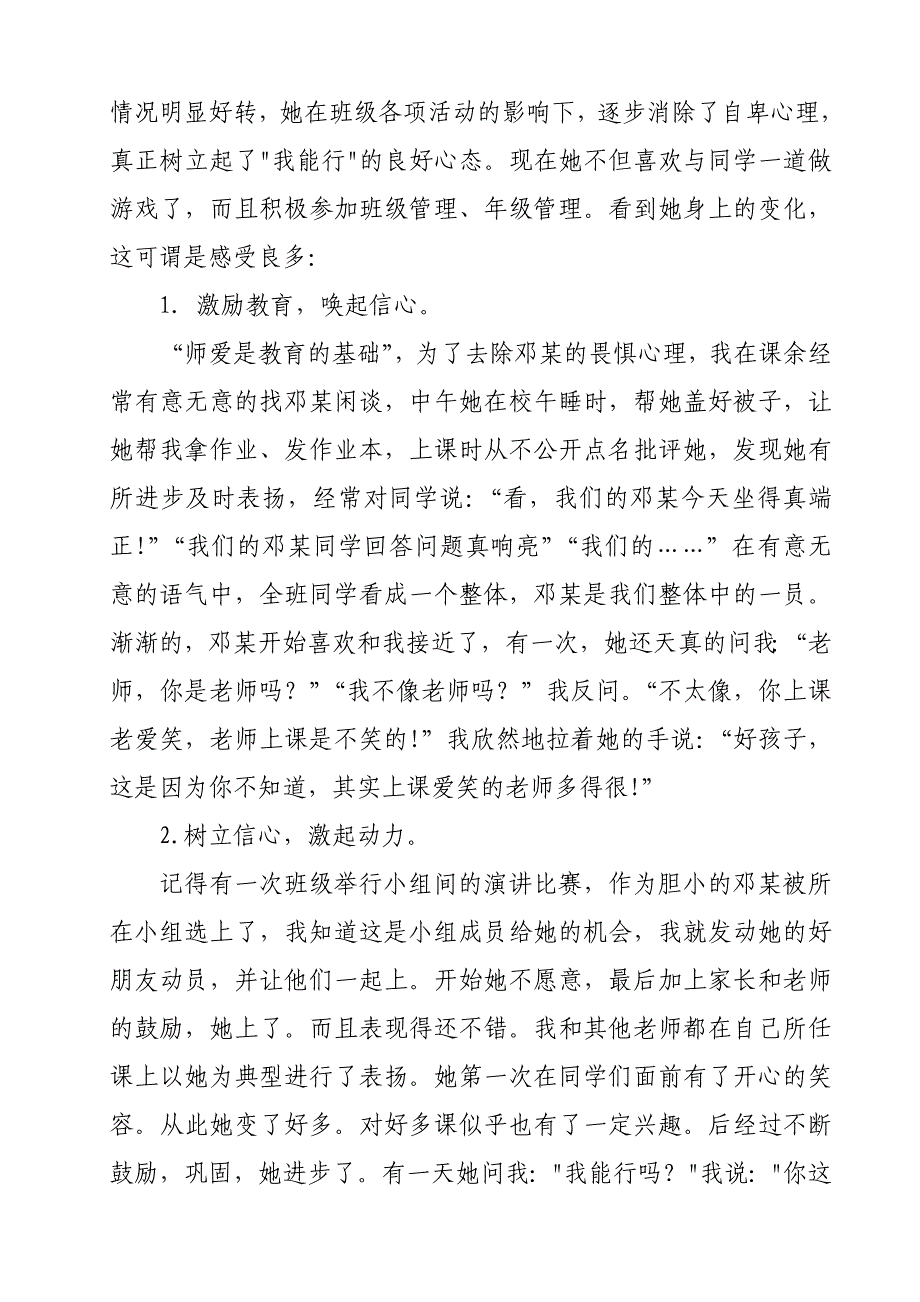 情况明显好转，她在班级各项活动的影响下，逐步消除了自卑心理，
真正树立起了"我能行"的良好心态。现在她不但喜欢与同学一道做
游戏了，而且积极参加班级管理、年级管理。看到她身上的变化，
这可谓是感受良多：
1. 激励教育，唤起信心。
“师爱是教育的基础”，为了去除邓某的畏惧心理，我在课余经
常有意无意的找邓某闲谈，中午她在校午睡时，帮她盖好被子，让
她帮我拿作业、发作业本，上课时从不公开点名批评她，发现她有
所进步及时表扬，经常对同学说：“看，我们的邓某今天坐得真端
正！”“我们的邓某同学回答问题真响亮”“我们的……”在有意无
意的语气中，全班同学看成一个整体，邓某是我们整体中的一员。
渐渐的，邓某开始喜欢和我接近了，有一次，她还天真的问我：“老
师，你是老师吗？”“我不像老师吗？”我反问。“不太像，你上课
老爱笑，老师上课是不笑的！”我欣然地拉着她的手说：“好孩子，
这是因为你不知道，其实上课爱笑的老师多得很！”
2.树立信心，激起动力。
记得有一次班级举行小组间的演讲比赛，作为胆小的邓某被所
在小组选上了，我知道这是小组成员给她的机会，我就发动她的好
朋友动员，并让他们一起上。开始她不愿意，最后加上家长和老师
的鼓励，她上了。而且表现得还不错。我和其他老师都在自己所任
课上以她为典型进行了表扬。她第一次在同学们面前有了开心的笑
容。从此她变了好多。对好多课似乎也有了一定兴趣。后经过不断
鼓励，巩固，她进步了。有一天她问我："我能行吗？"我说："你这